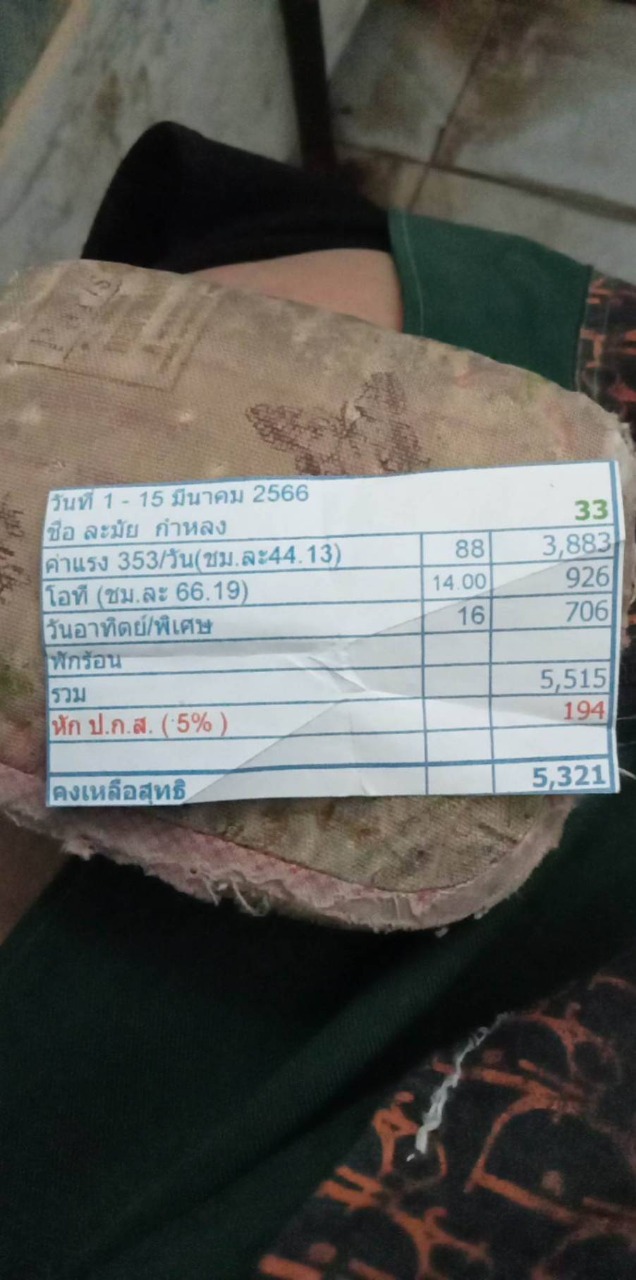 วันที่ 1 - 15 มีนาคม 2566
ชื่อ ละมัย กำหลง 33
ค่าแรง 353/วัน(ชม.ละ44.13) 88 3,883
โอที (ชม.ละ 66.19) 14.00 926
วันอาทิตย์/พิเศษ 16 706
พักร้อน
รวม 5,515
หัก ป.ก.ส. ( 5% ) 194
คงเหลือสุทธิ 5,321